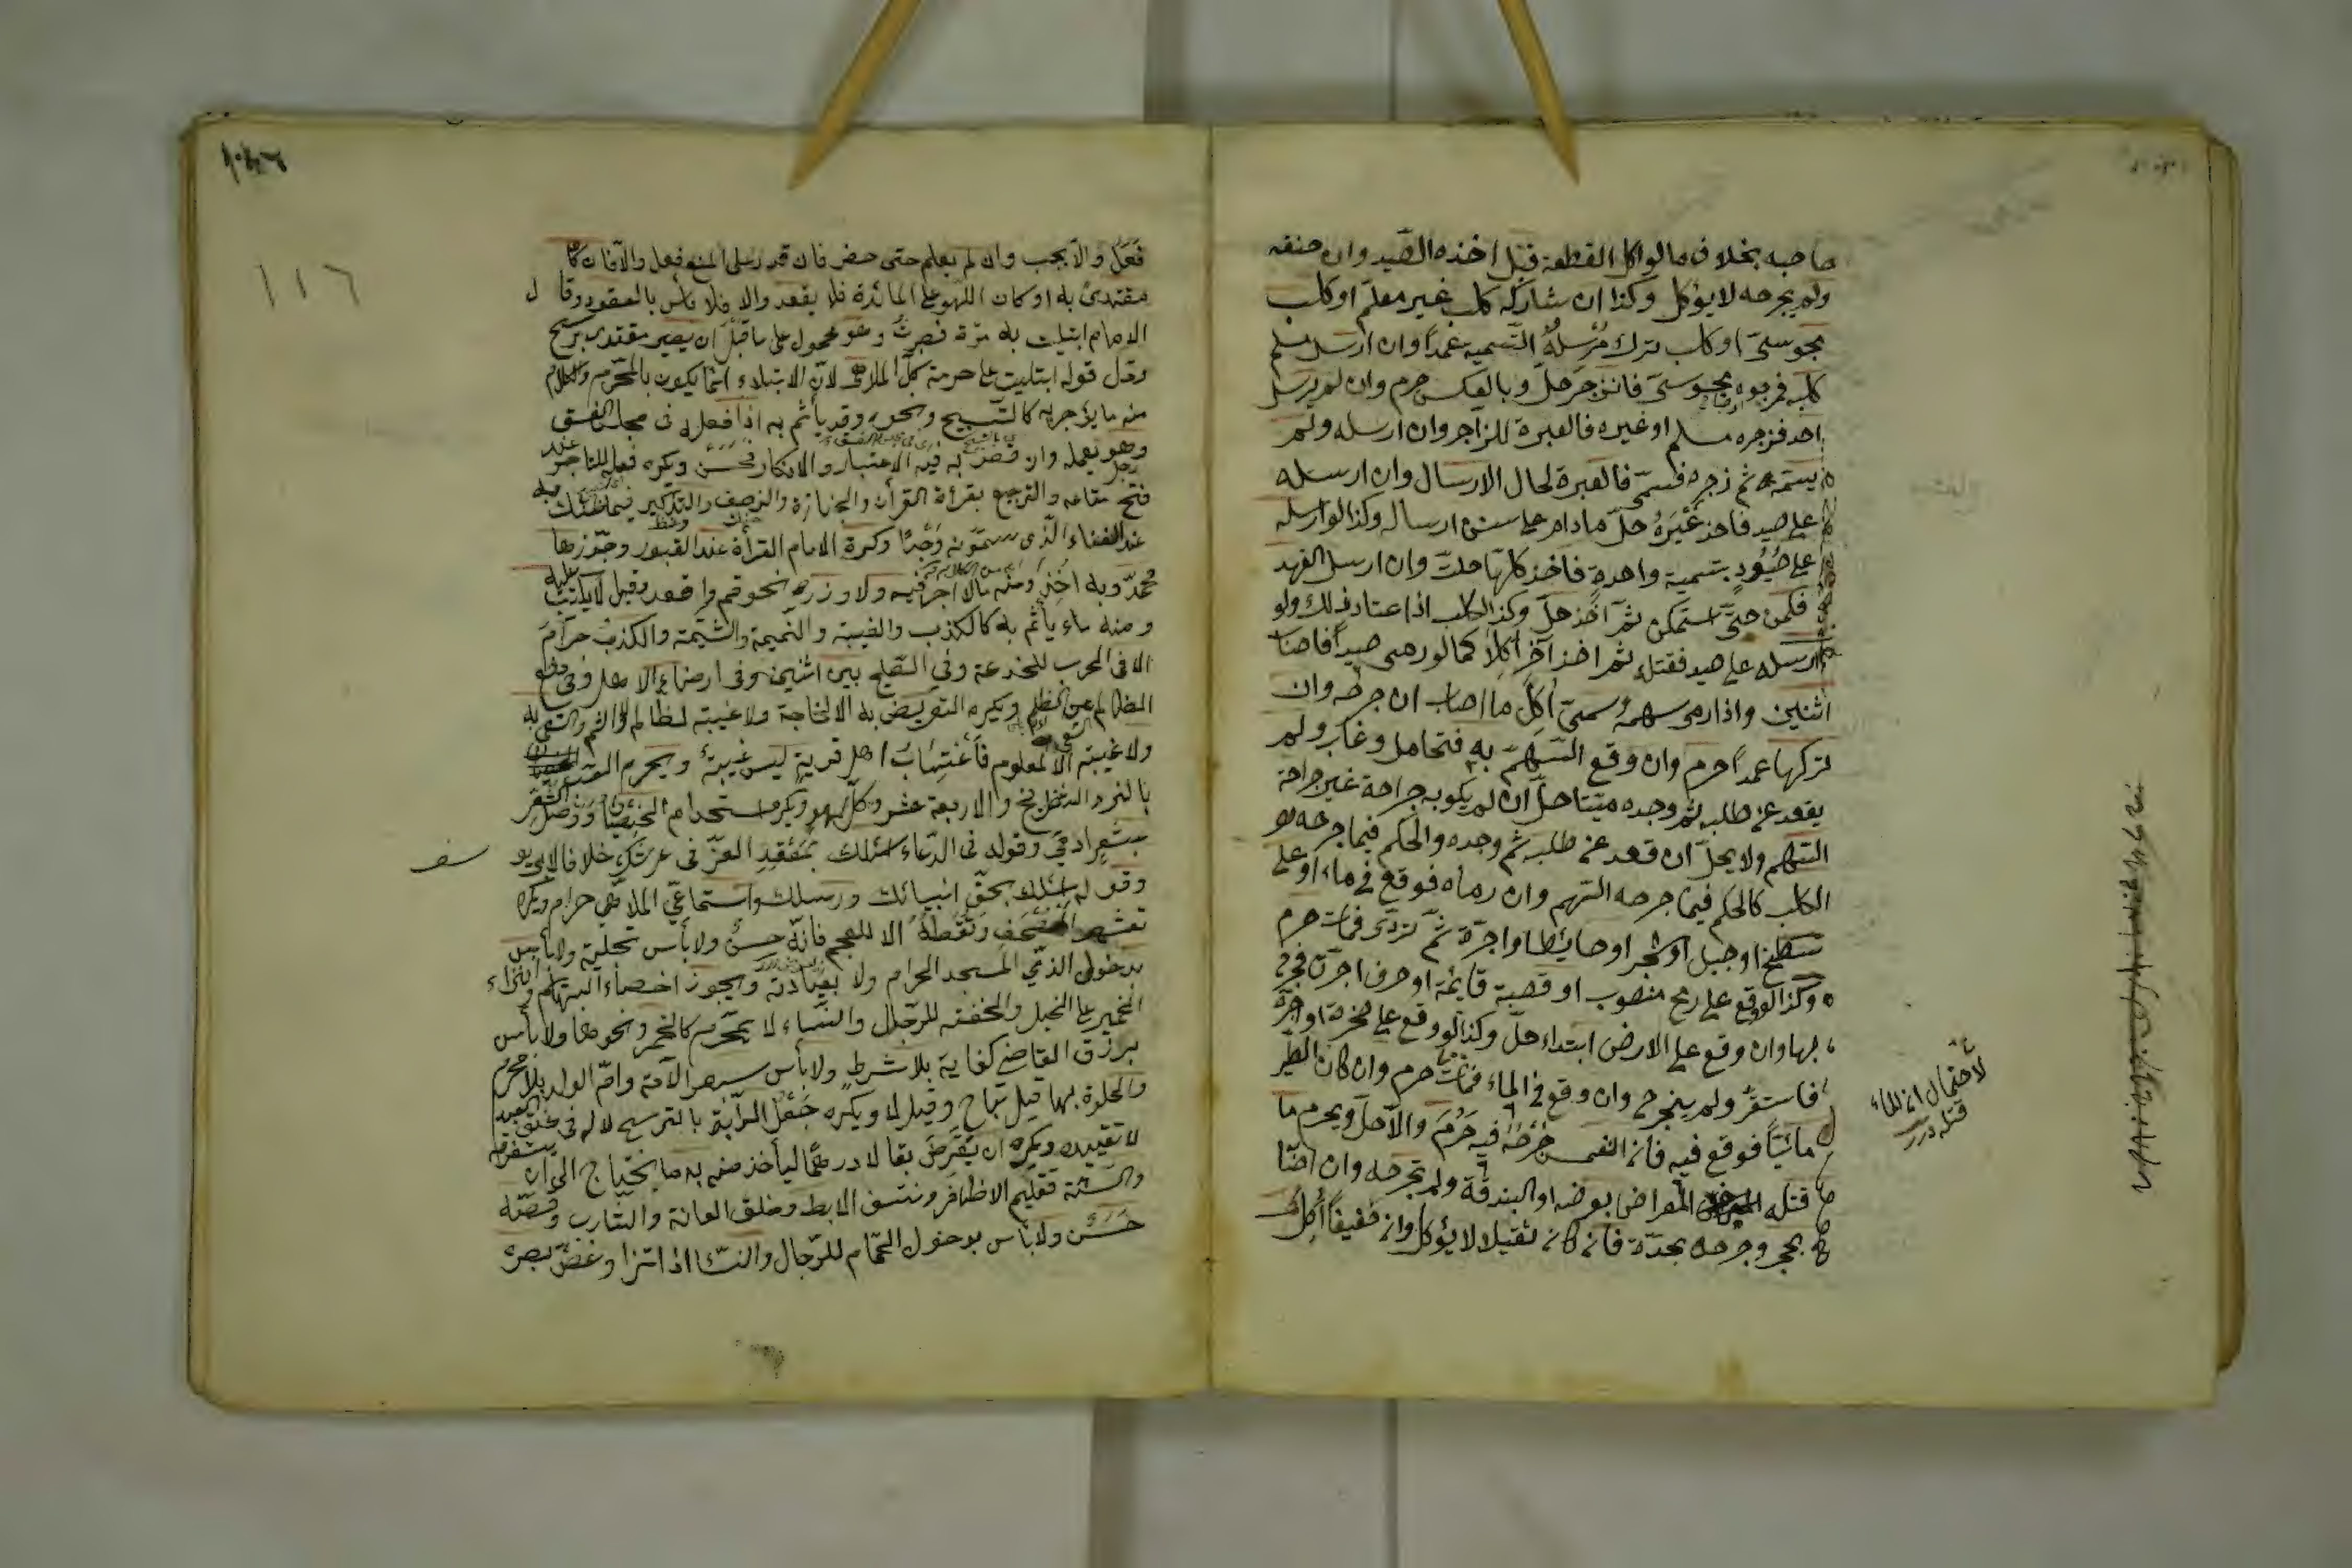 صاحبه بخلاف مالو اكل القطعة قبل اخذه الصيد وان خنقه
ولم يجرحه لا يؤكل وكذا ان شاركه كلب غير معلّم او كلب
مجوسىّ او كلب ترك مُرْسِلُهُ التّسمية عمداً وان ارسل مسلم
كلبه فزجره مجوسىّ فانزجر حلّ وبالعكس حرم وان لم يرسل
احد فزجره مسلم او غيره فالعبرة للزاجر وان ارسله ولم
يسمّ ثم زجره فسمّى فالعبرة لحال الارسال وان ارسله
على صيد فاخذ غَيْرَهُ حلّ مادام على سنن ارساله وكذا لو ارسله
على صُيُودٍ بتسمية واحدة فاخذ كلّها حلت وان ارسل الفهد
فكمن حتّى استمكن ثم اخذ حلّ وكذا الكلب اذا اعتاد ذلك ولو
ارسله على صيد فقتله ثم اخذ آخر اُكلا كما لو رمى صيداً فاصاب
اثنين واذا رمى سهمه وسمّى اُكل ما اصاب ان جرحه وان
تركها عمداً حرم وان وقع السّهم به فتحامل وغاب ولم
يقعد عن طلبه ثم وجده ميّتا حلّ ان لم يكن به جراحة غير جراحة
السّهم ولا يحلّ ان قعد عن طلبه ثم وجده والحكم فيما جرحه
الكلب كالحكم فيما جرحه السّهم وان رماه فوقع فى ماء او على
سطح او جبل او شجر او حائط او اجرّة ثم تردّى فمات حرم
وكذا لو وقع على رمح منصوب او قصبة قايمة او حرف اجرّة فجرح
بها وان وقع على الارض ابتداء حلّ وكذا لو وقع على صخرة او اجرّة
فاستقرّ ولم ينجرح وان وقع فى الماء فمات حرم وان كان الطير
مائيّاً فوقع فيه فان انغمس جُرْحُهُ فيه حَرُمَ والّا حلّ ويحرم ما
قتله المعراض بعرضه او البندقة ولم تجرحه وان اصابه
بحجر وجرحه بحدّه فان كان ثقيلا لا يؤكل وان خفيفاً اُكل
لاحتمال ان الماء
قتله درر
١١٦
فَعَلَ والّا يجب وان لم يعلم حتى حضر فان قدر على المنع فعل والّا فان كان
مقتدى به او كان اللّهو على المائدة فلا يقعد والا فلا بأس بالعقود وقال
الامام ابتليت به مرّة فصبرت وهو محمول على ما قبل ان يصير مقتدى به
ودل قوله ابتليت على حرمة كلّ الملاهى لانّ الابتلاء انّما يكون بالمحرّم والكلام
منه ما يؤجر به كالتّسبيح ونحوه وقد يأثم به اذا فعله فى مجلس الفسق
وهو يعمله وان قصد به فيه الاعتبار والانكار فحسن ويكره فعله للتاجر عند
فتح متاعه والترجيع بقرأة القران والجنازة والزحف والتذكير فما ظنّك به
عند الغناء الّذى يسمّونه وَجْدًا وكره الامام القرأة عند القبور وجوّزها
محمّد وبه اُخِذَ ومنه مالا اجر فيه ولا وزر نحو قم واقعد وقيل لا يكتب عليه
ومنه ماء يأثم به كالكذب والغيبة والنّميمة والشتيمة والكذب حرامٌ
الا فى الحرب للخدعة وفى الصّلح بين اثنين وفى ارضاء الاهل وفى دفع
الظالم عن الظلم ويكره التعريض به الا لحاجة ولا غيبة لظالم
ولا غيبة الا لمعلوم فاغتياب اهل قرية ليس غيبة ويحرم اللعب
بالنرد والشطرنج والاربعة عشر وكلّ لهو ويكره استخدام الخِصْيَان ووصل الشّعر
بشعر ادمىّ وقوله فى الدّعاء اسئلك بمَقعَدِ العزّ فى عرشك خلافا لابى يو
سف
وقوله اسئلك بحقّ انبيائك ورسلك واستماع الملاهى حرام ويكره
تعشير المصحف ونَقْطُهُ الا للعجم فانّه حسن ولا بأس تحليته ولا بأس
بدخول الذمّى المسجد الحرام ولا بعيادته ويجوز اخصاء البهائم وانزاء
الحمير على الخيل والحقنة للرّجال والنساء لا بمحرّم كالخمر ونحوها ولا بأس
برزق القاضى كفاية بلا شرط ولا بأس بسفر الامة وامّ الولد بلا محرم
والخلوة بها قيل تباح وقيل لا ويكره جَعْلُ الرّاية
لا تقييده ويكره ان يُقرض بقالا درهما ليأخذ منه به ما يحتاج الى ان
والسّنّة تقليم الاظافر ونتف الابط وحلق العانة والشارب وقصّه
حَسَنٌ ولا بأس بدخول الحمّام للرّجال والنسا اذا اتزر وغضّ بصره